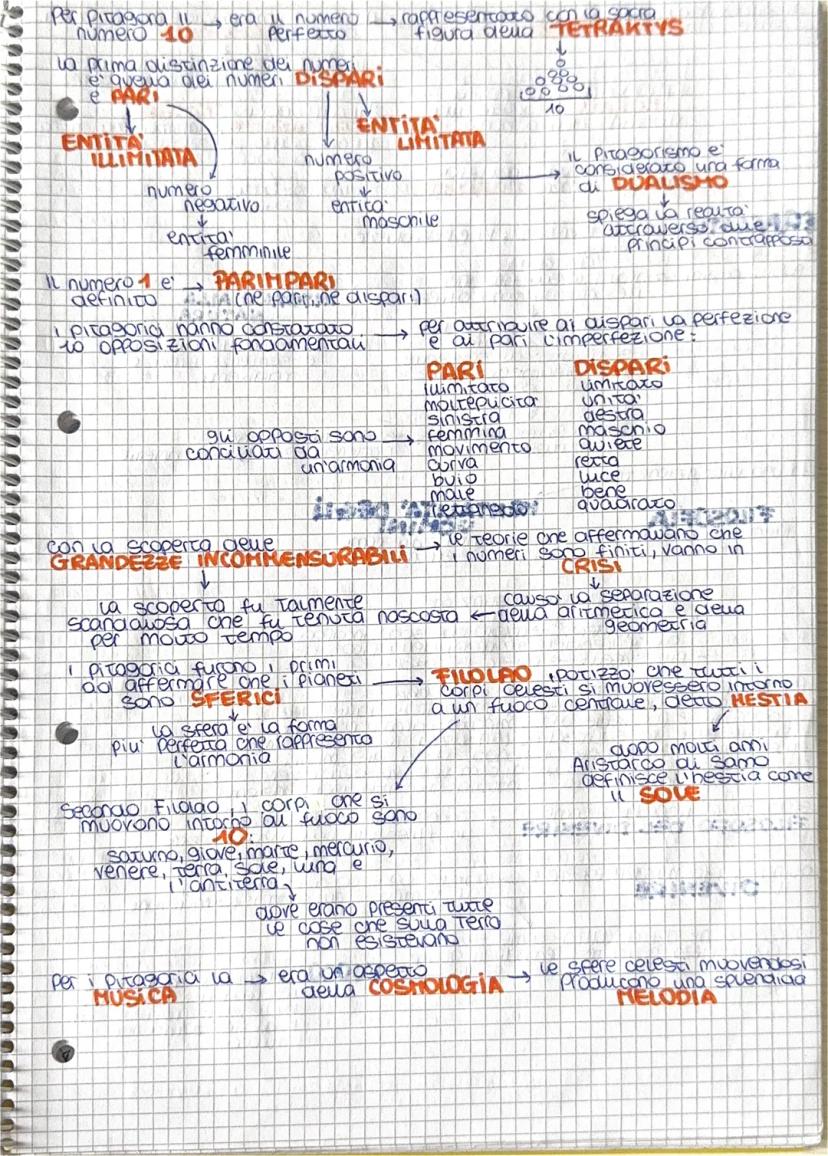 Per Pitagora il → era il numero → rappresentato con la sacra
numero 10 perfetto figura della TETRAKTYS
la prima distinzione dei numeri
è quella dei numeri DISPARI
e PARI
10
ENTITA' ILLIMITATA
ENTITA' LIMITATA
numero negativo
entita' femminile
numero positivo
entita' maschile
il Pitagorismo e'
considerato una forma
di DUALISMO
spiega la realta'
attraverso due
principi contrapposti
Il numero 1 e' → PARIMPARI
definito (ne pari, ne dispari)
i pitagorici hanno constatato → per attribuire ai dispari la perfezione
10 opposizioni fondamentali e ai pari l'imperfezione:
PARI DISPARI
illimitato limitato
molteplicita' unita'
sinistra destra
femmina maschio
movimento quiete
curva retta
buio luce
male bene
rettangolo quadrato
gli opposti sono →
conciliati da
un'armonia
con la scoperta delle → le teorie che affermavano che
GRANDEZZE INCOMMENSURABILI i numeri sono finiti, vanno in
CRISI
causa la separazione
della aritmetica e della
geometria
la scoperta fu talmente
scandalosa che fu tenuta nascosta ←
per molto tempo
i pitagorici furono i primi
ad affermare che i pianeti →
sono SFERICI
la sfera e' la forma
piu' perfetta che rappresenta
l'armonia
FILOLAO ipotizzo' che tutti i
corpi celesti si muovessero intorno
a un fuoco centrale, detto HESTIA
dopo molti anni
Aristarco di Samo
definisce l'hestia come
il SOLE
Secondo Filolao, i corpi che si
muovono intorno al fuoco sono
10:
saturno, giove, marte, mercurio,
venere, terra, sole, luna e
l'antiterra
dove erano presenti tutte
le cose che sulla Terra
non esistevano
Per i pitagorici la → era un aspetto → le sfere celesti muovendosi
MUSICA della COSMOLOGIA producono una splendida
MELODIA